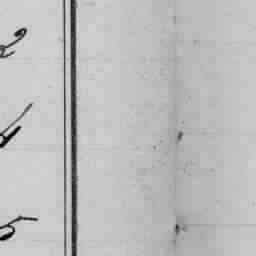 2
4
5